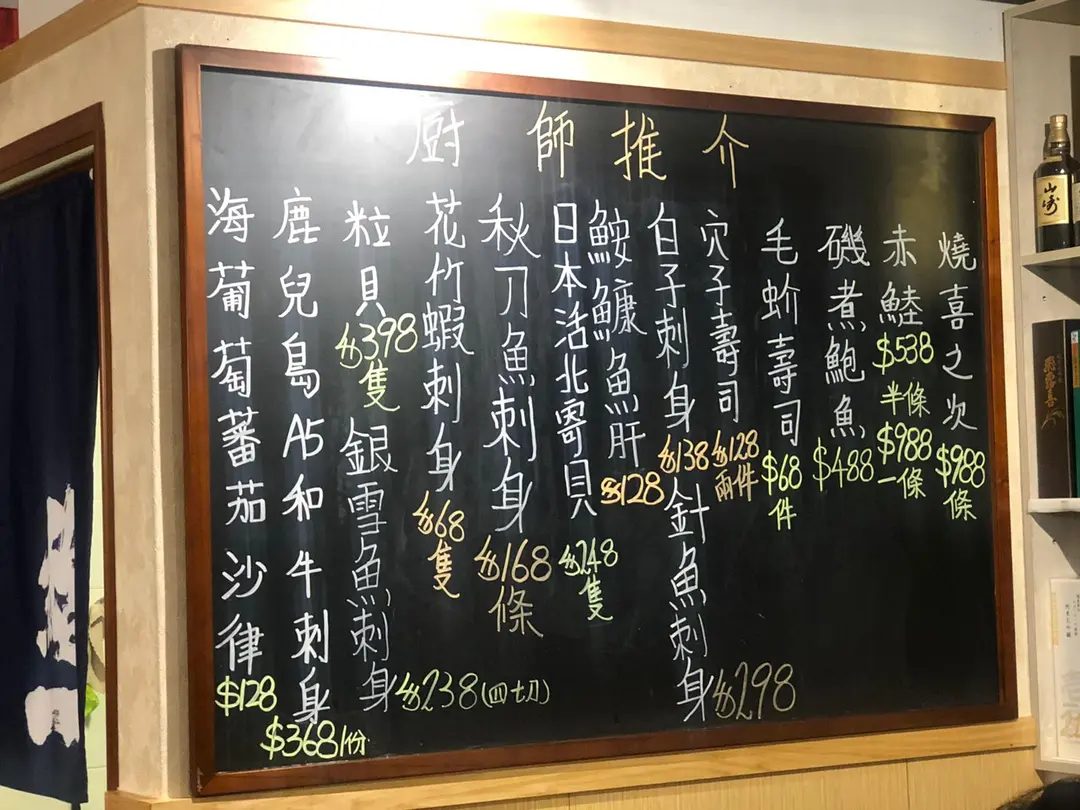 廚師推介
燒喜之次 $988 條
赤鯥 $538 半條 $988 一條
磯煮鮑魚 $488
毛蚧壽司 $68 件
穴子壽司 $128 兩件
白子刺身 $138
針魚刺身 $298
鮟鱇魚肝 $128
日本活北寄貝 $248 隻
秋刀魚刺身 $168 條
花竹蝦刺身 $68 隻
粒貝 $398 隻
銀雪魚刺身 $238 (四七刀)
鹿兒島A5和牛刺身 $368/份
海葡萄蕃茄沙律 $128
山崎